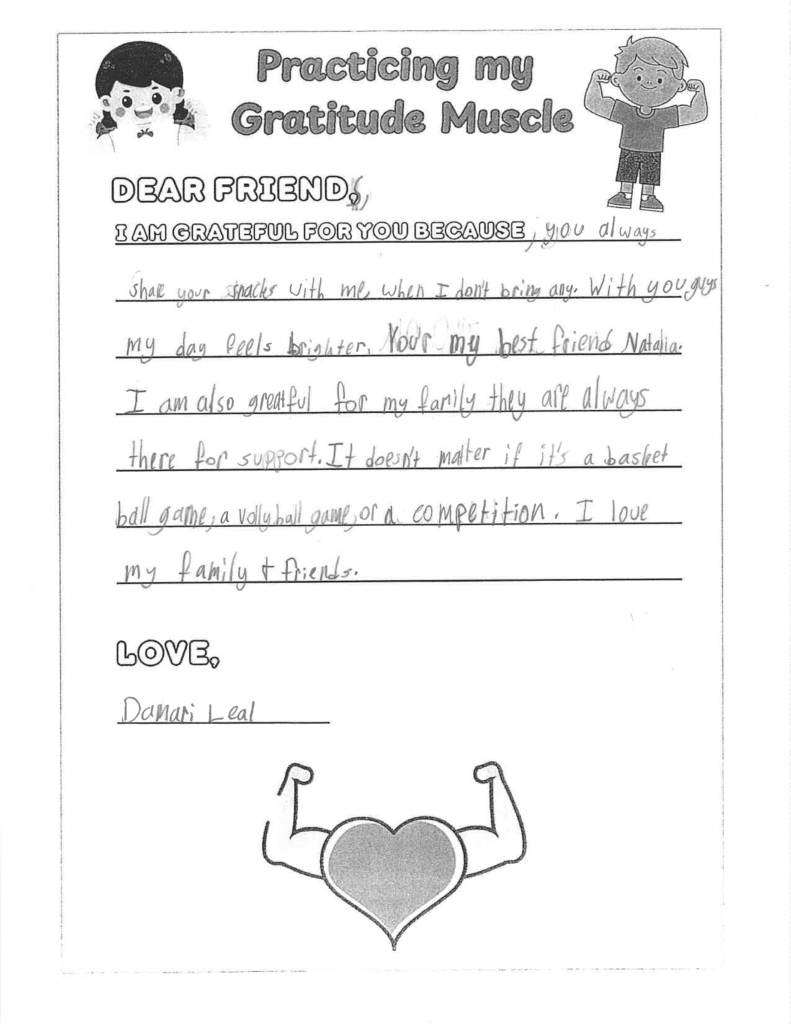 Practicing my
Gratitude Muscle
DEAR FRIEND,s,
I AM GRATEFUL FOR YOU BECAUSE , you always
share your snacks with me, when I don't bring any. With you guys
my day feels brighter. You'r my best friend Natalia.
I am also greatful for my family they are always
there for support. It doesn't matter if it's a basket
ball game, a vollyball game, or a competition. I love
my family + friends.
LOVE,
Damari Leal